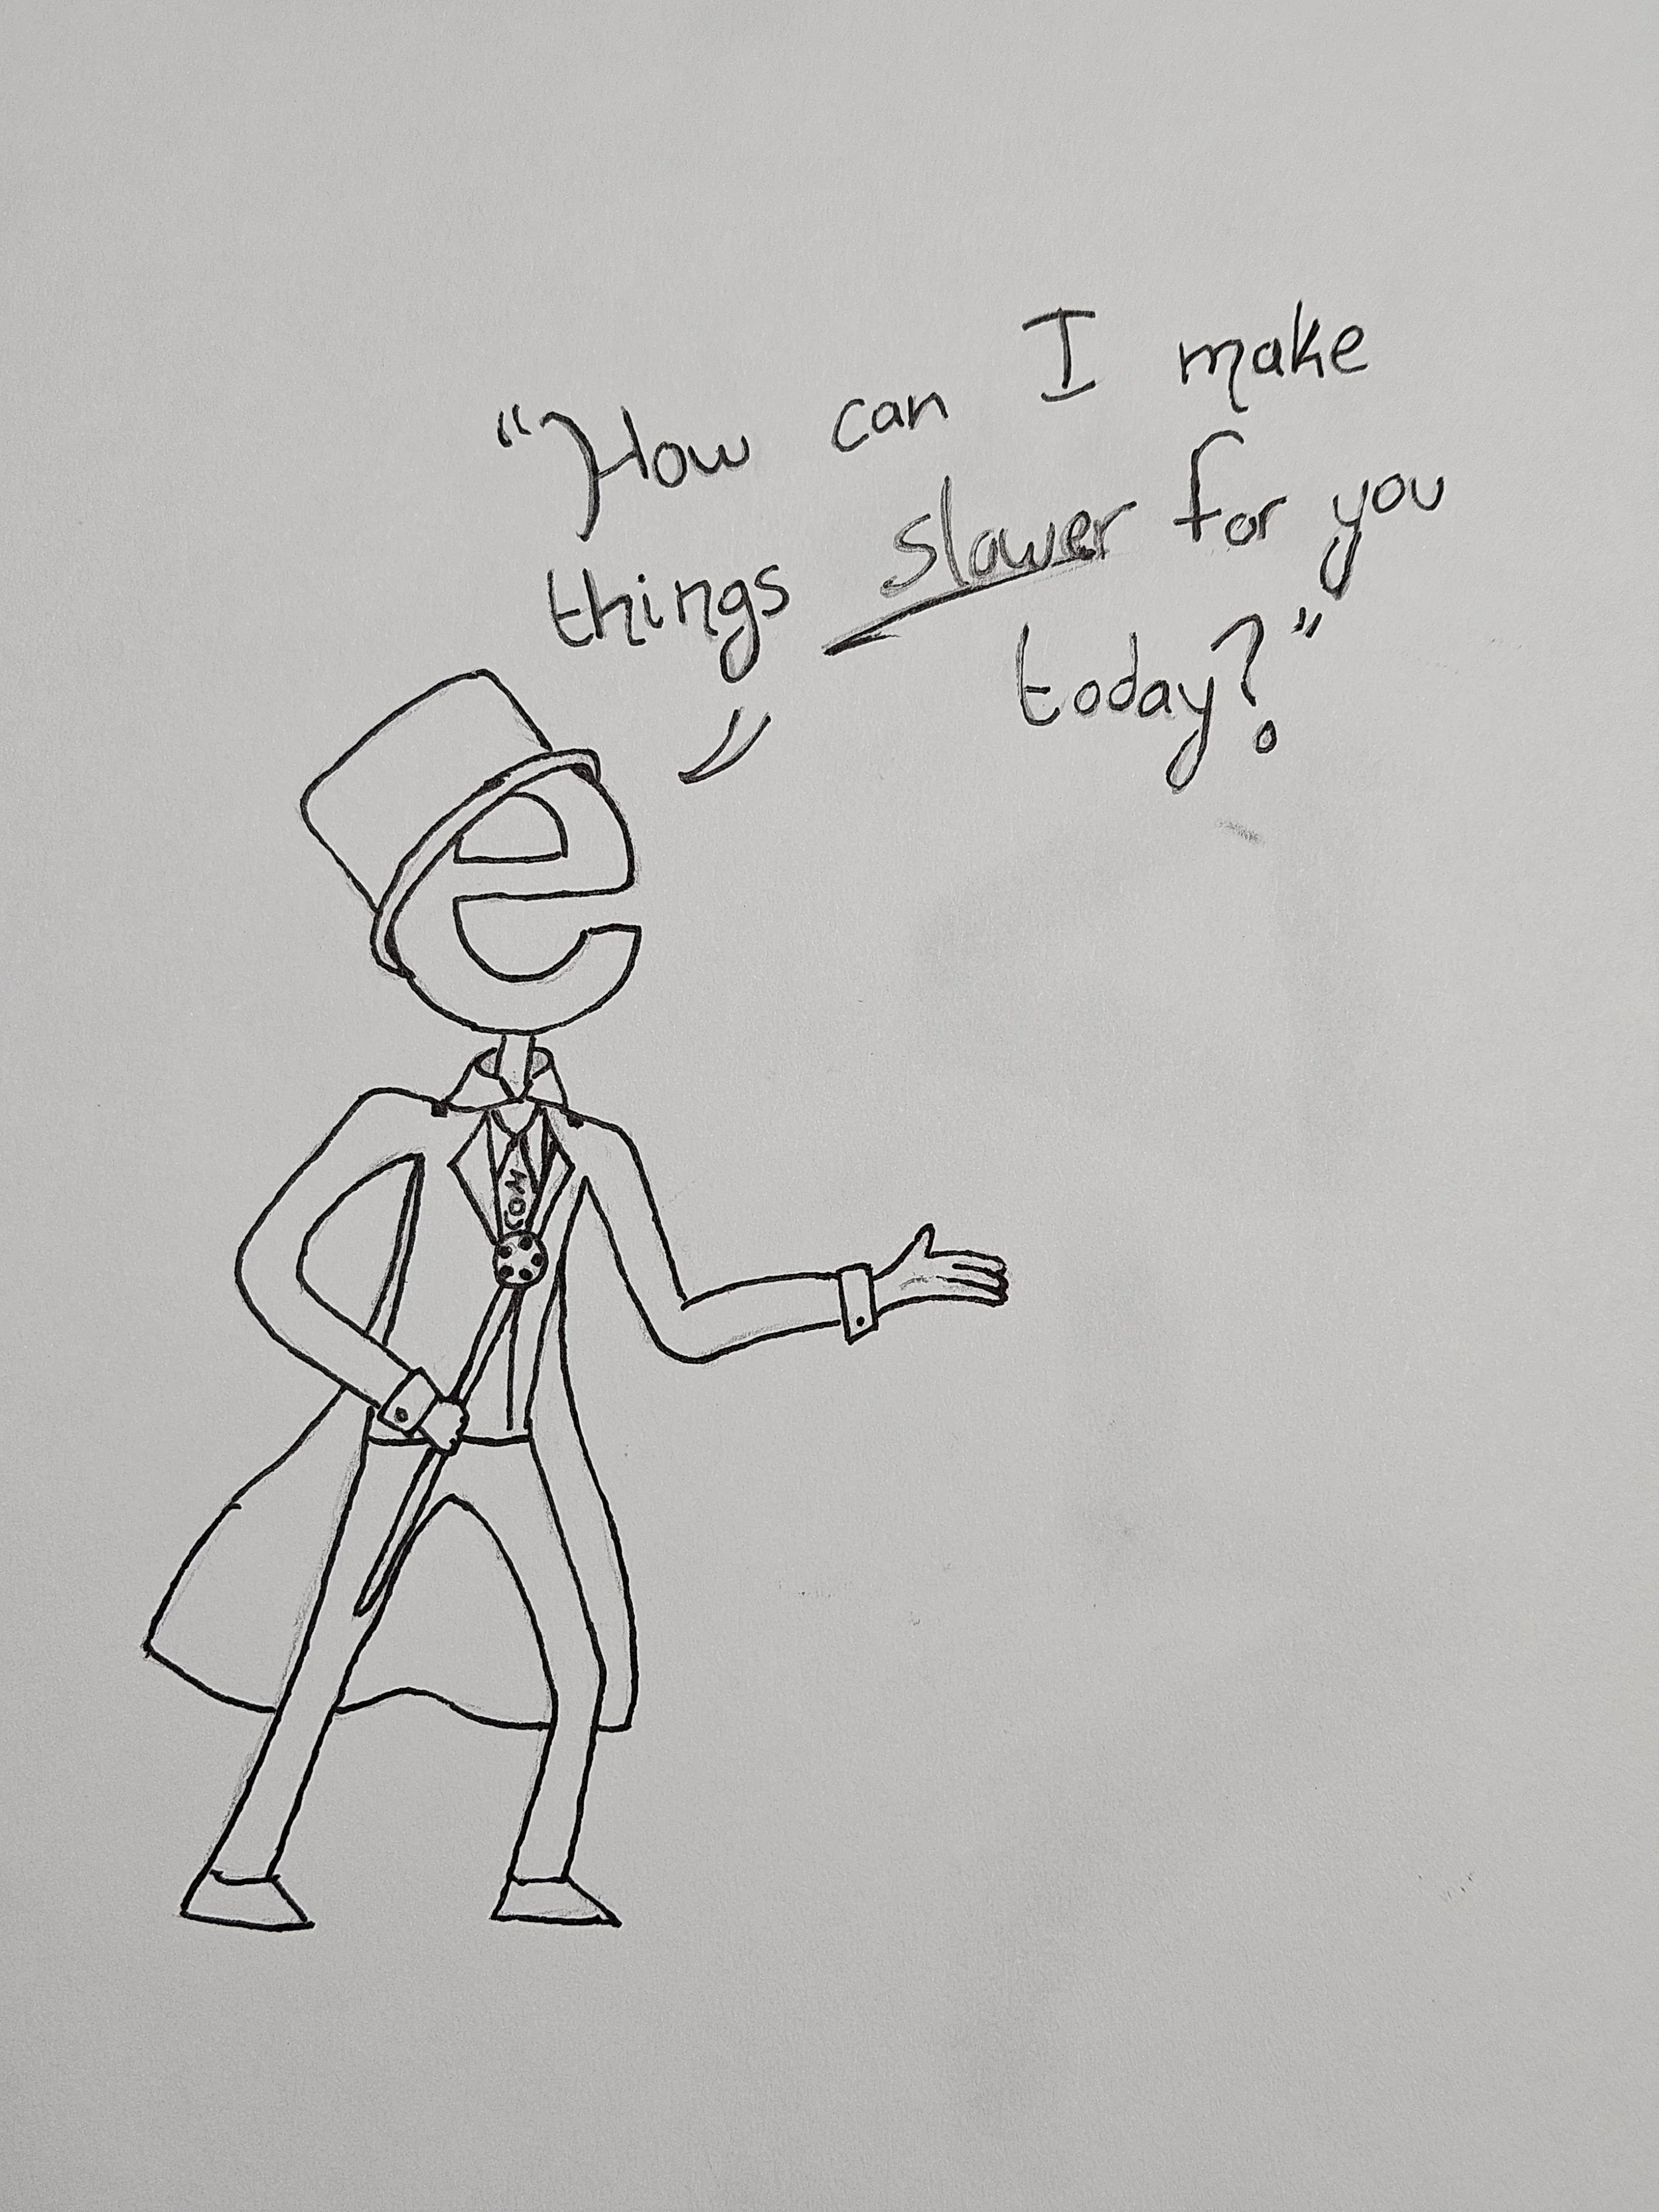 "How can I make
things slower for you
today?"
e
COM